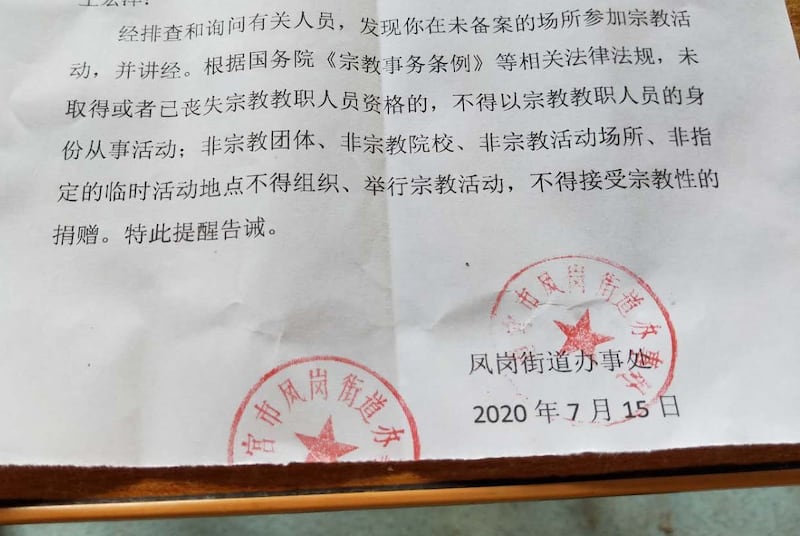 经排查和询问有关人员，发现你在未备案的场所参加宗教活
动，并讲经。根据国务院《宗教事务条例》等相关法律法规，未
取得或者已丧失宗教教职人员资格的，不得以宗教教职人员的身
份从事活动；非宗教团体、非宗教院校、非宗教活动场所、非指
定的临时活动地点不得组织、举行宗教活动，不得接受宗教性的
捐赠。特此提醒告诫。
市凤岗街道办事处
凤岗街道办事处
2020 年 7 月 15 日
宫市凤岗街道办